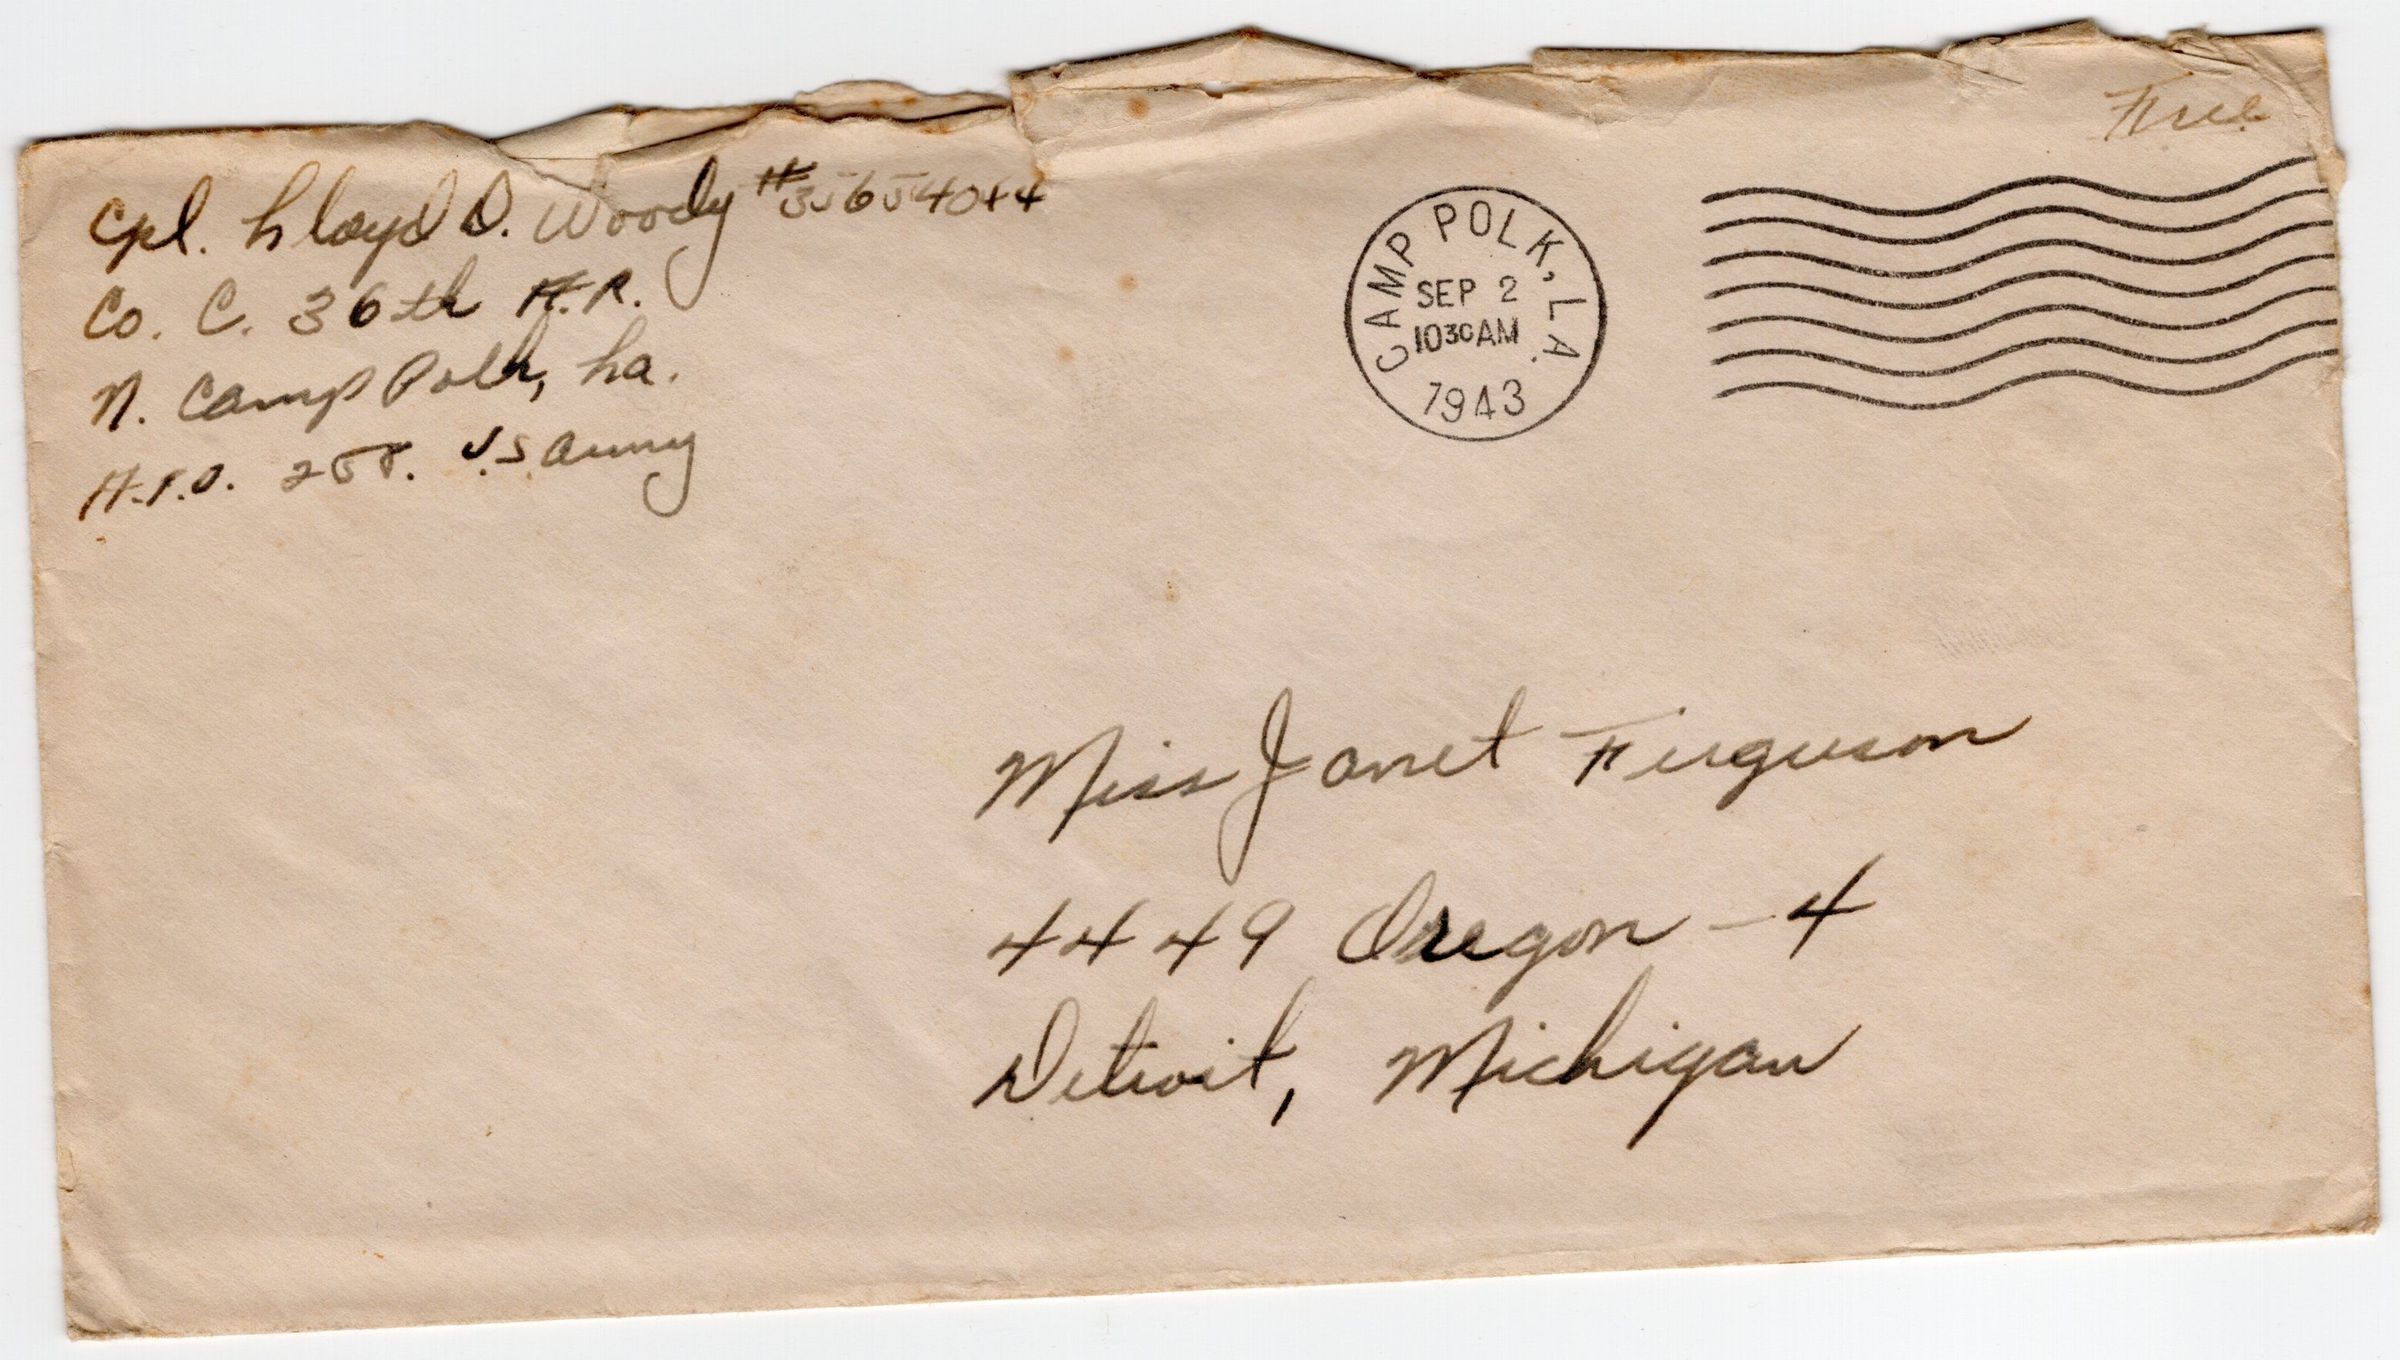 Cpl. Lloyd D. Woody #35654044
Co. C. 36th A.R.
N. Camp Polk, La.
A.P.O. 258. U.S. Army
Free
CAMP POLK, LA.
SEP 2
1030AM
1943
Miss Janet Ferguson
4449 Oregon - 4
Detroit, Michigan